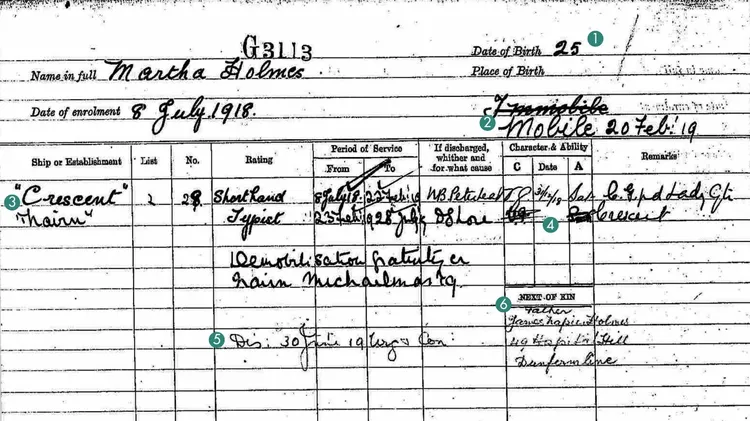 G3113
Date of Birth 25 1
Name in full Martha Holmes
Place of Birth
Date of enrolment 8 July 1918.
Immobile
2 Mobile 20 Feb '19
Ship or Establishment List No. Rating Period of Service If discharged, whether and for what cause Character & Ability Remarks
From To C Date A
3 "Crescent" 2 28 Shorthand 8 July 18 22 Feb 19 Sat
"Nairn" Typist 23 Feb 19 28 July DShore 4 Crescent
Demobilisation gratuity
Nairn Michaelmas 19
6 NEXT OF KIN
Father
James Napier Holmes
5 Dis: 30 19 49 Hospital Hill
Dunfermline